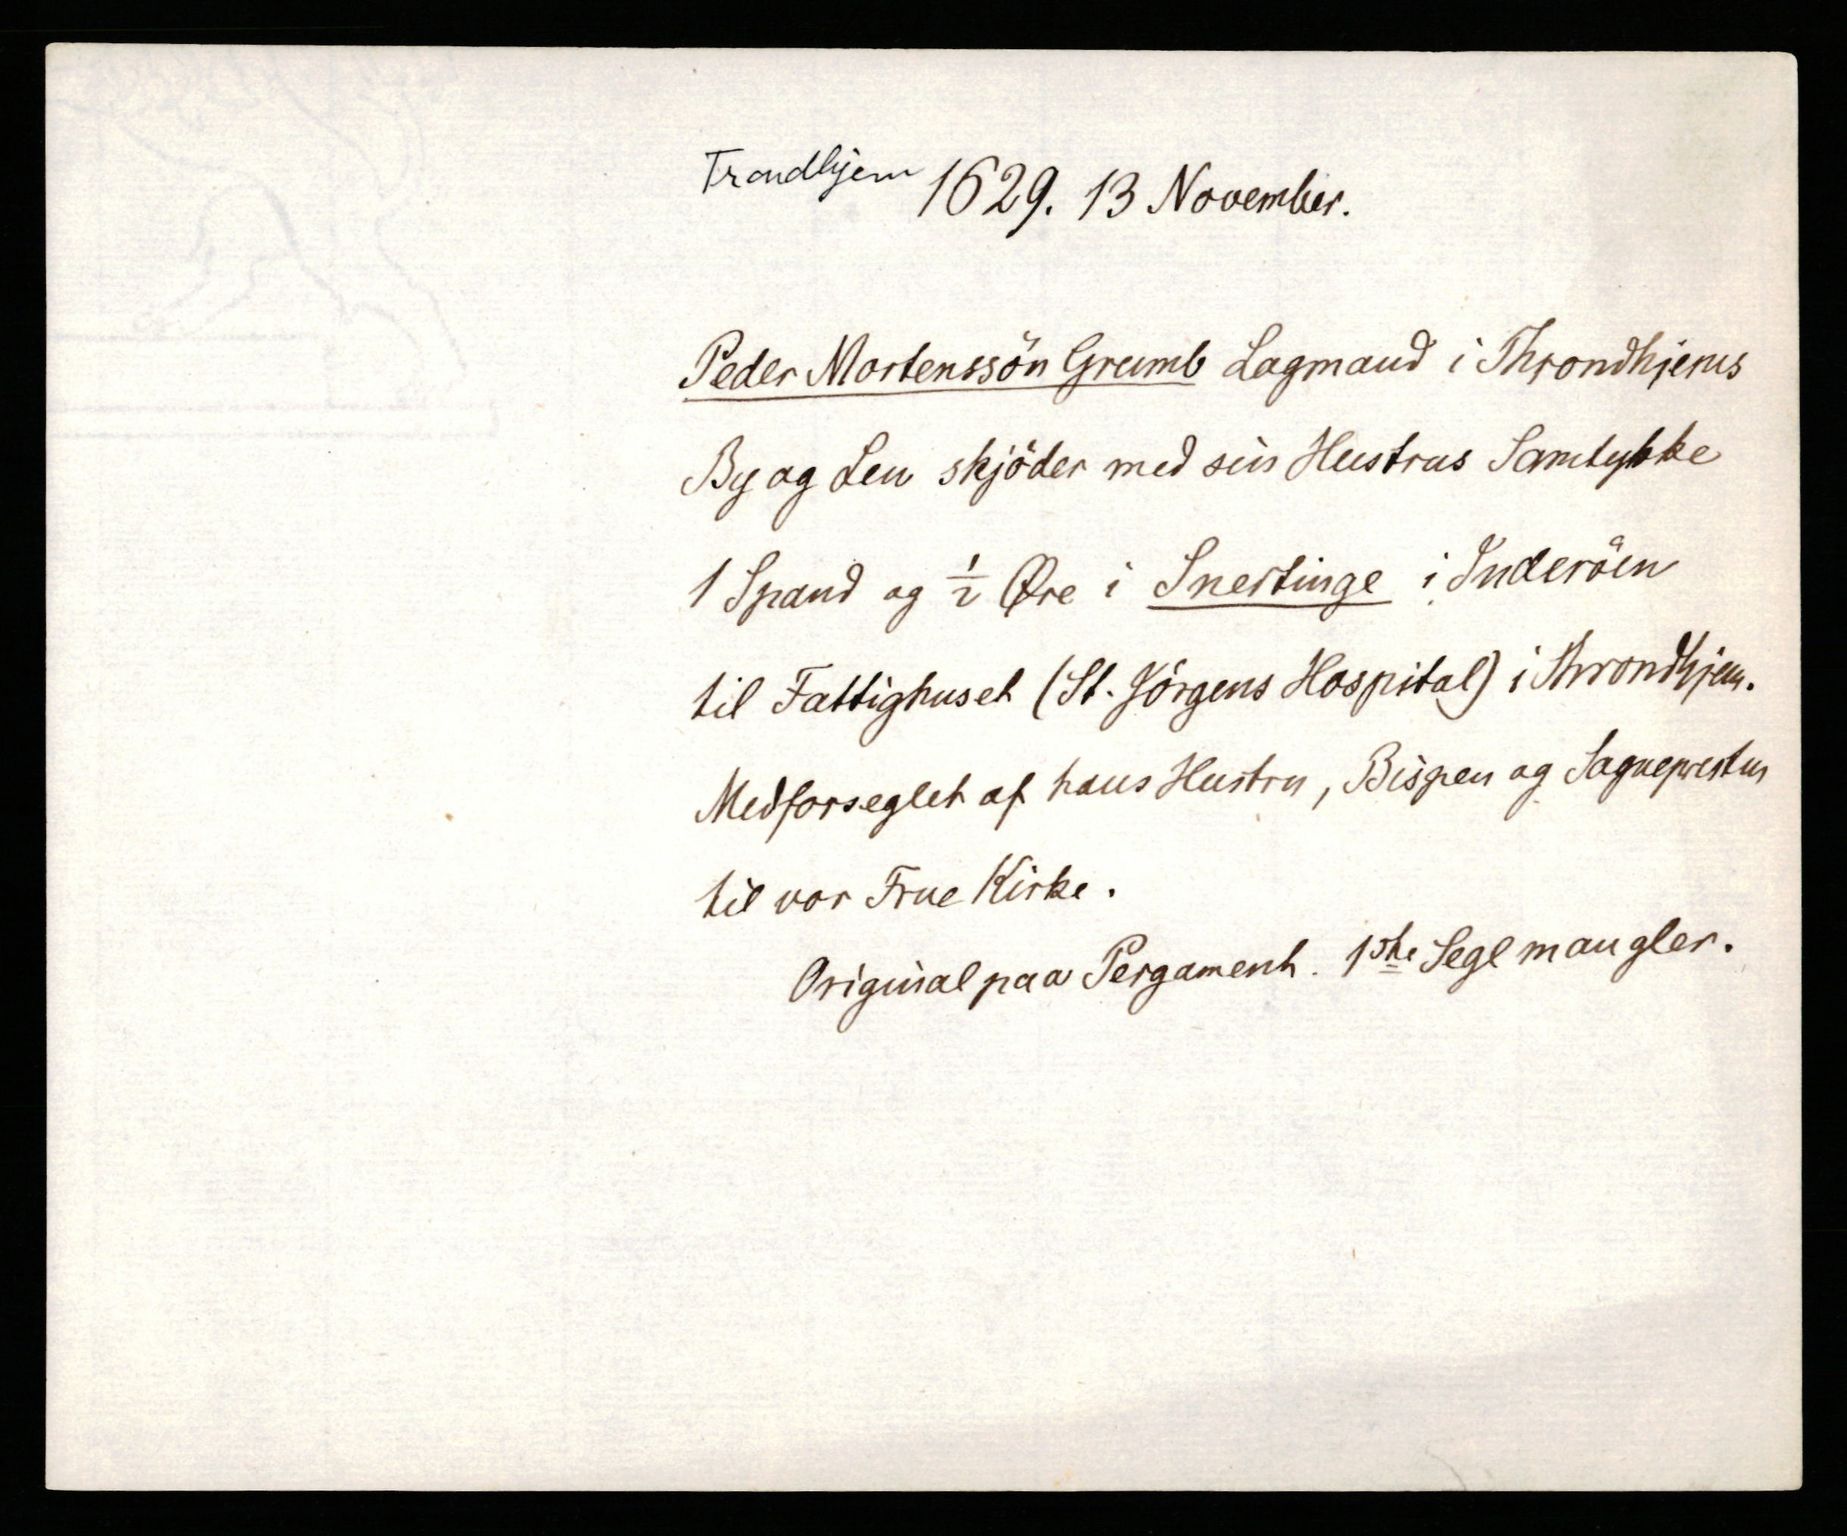 Trondhjem 1629. 13 November.
Peder Mortenssön Grumb Lagmand i Throndhjems
By og Len skjöder med sin Hustrus Samtykke
1 Spand og ½ Øre i Snertinge i Inderöen
til Fattighuset (St. Jörgens Hospital) i Throndhjem.
Medforseglet af hans Hustru, Bispen og Sognepresten
til vor Frue Kirke.
Original paa Pergament. 1ste Segl mangler.